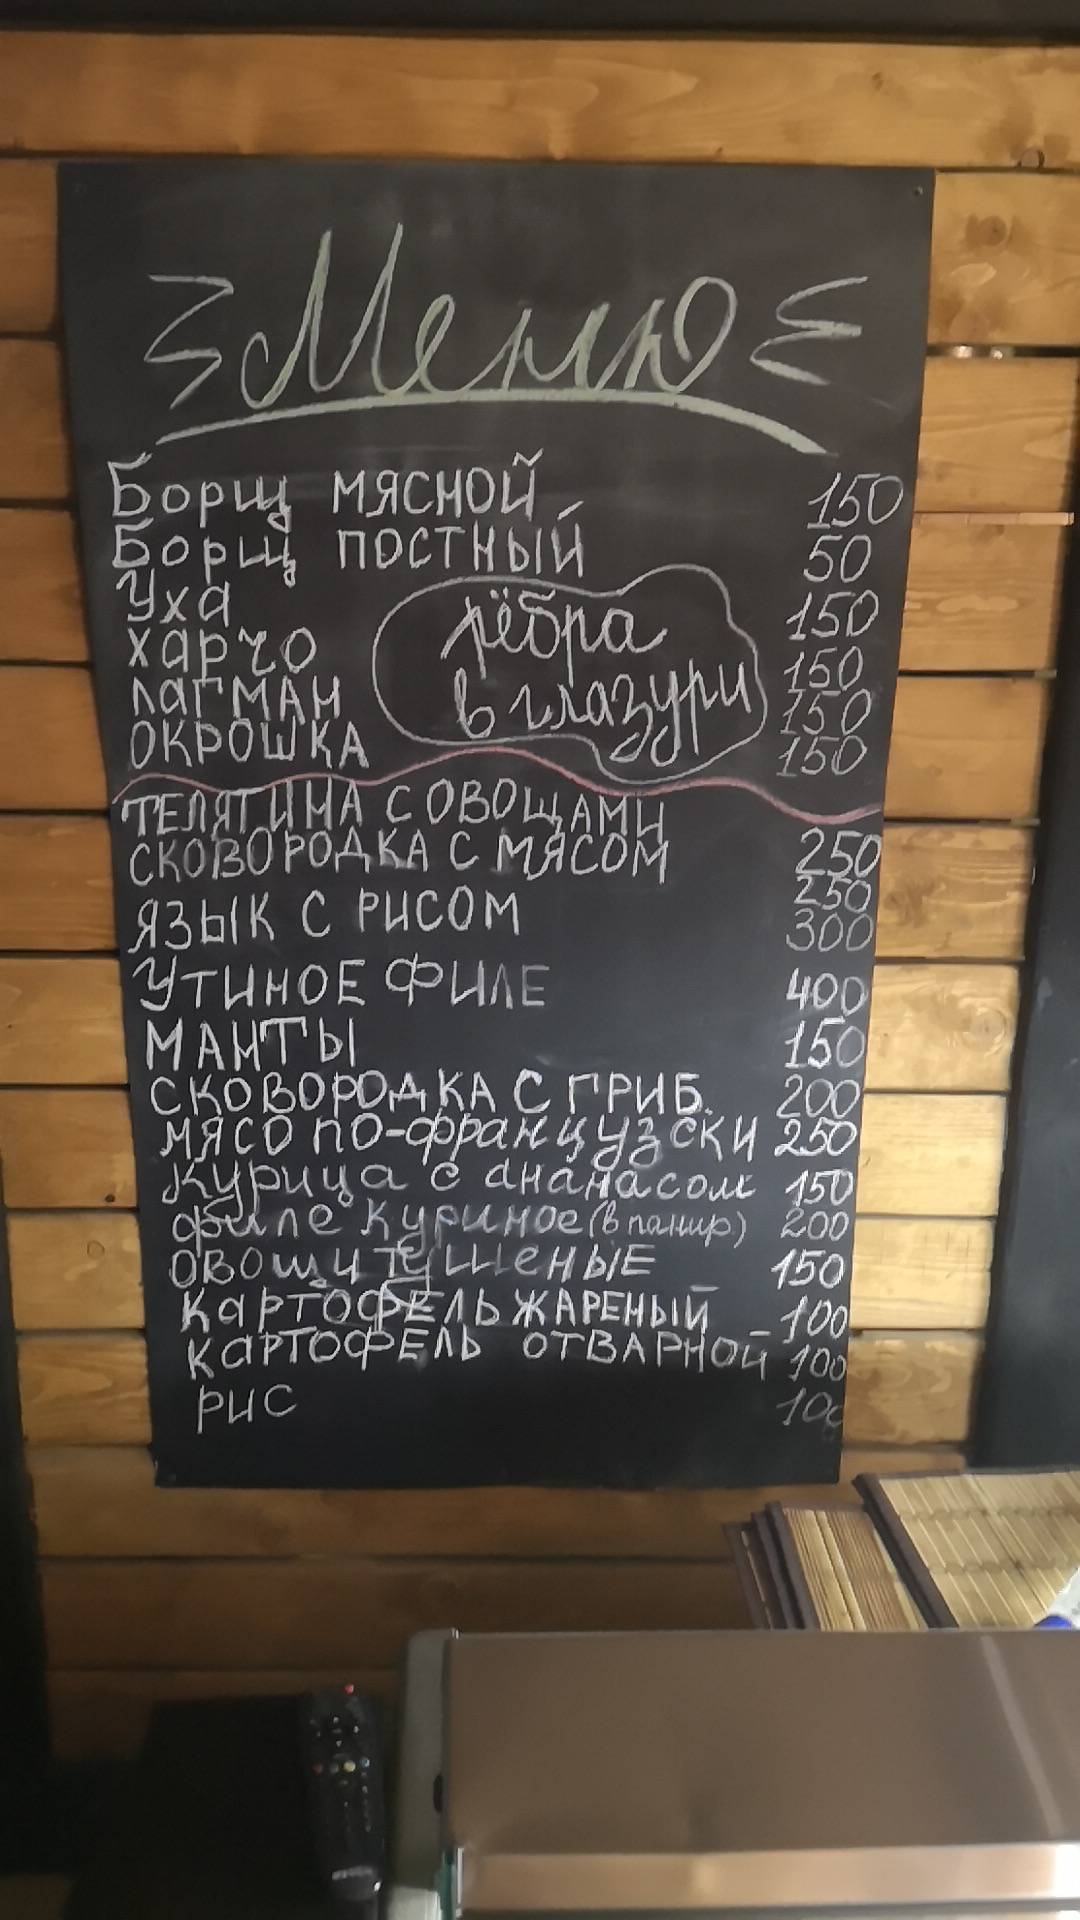 Меню
Борщ мясной 150
Борщ постный 50
Уха 150
харчо 150
лагман 150
окрошка 150
рёбра
в глазури
ТЕЛЯТИНА С ОВОЩАМИ 250
СКОВОРОДКА С МЯСОМ 250
ЯЗЫК С РИСОМ 300
УТИНОЕ ФИЛЕ 400
МАНТЫ 150
СКОВОРОДКА С ГРИБ. 200
мясо по-французски 250
Курица с ананасом 150
филе куриное (в панир.) 200
овощи тушеные 150
картофель жареный 100
картофель отварной 100
рис 100